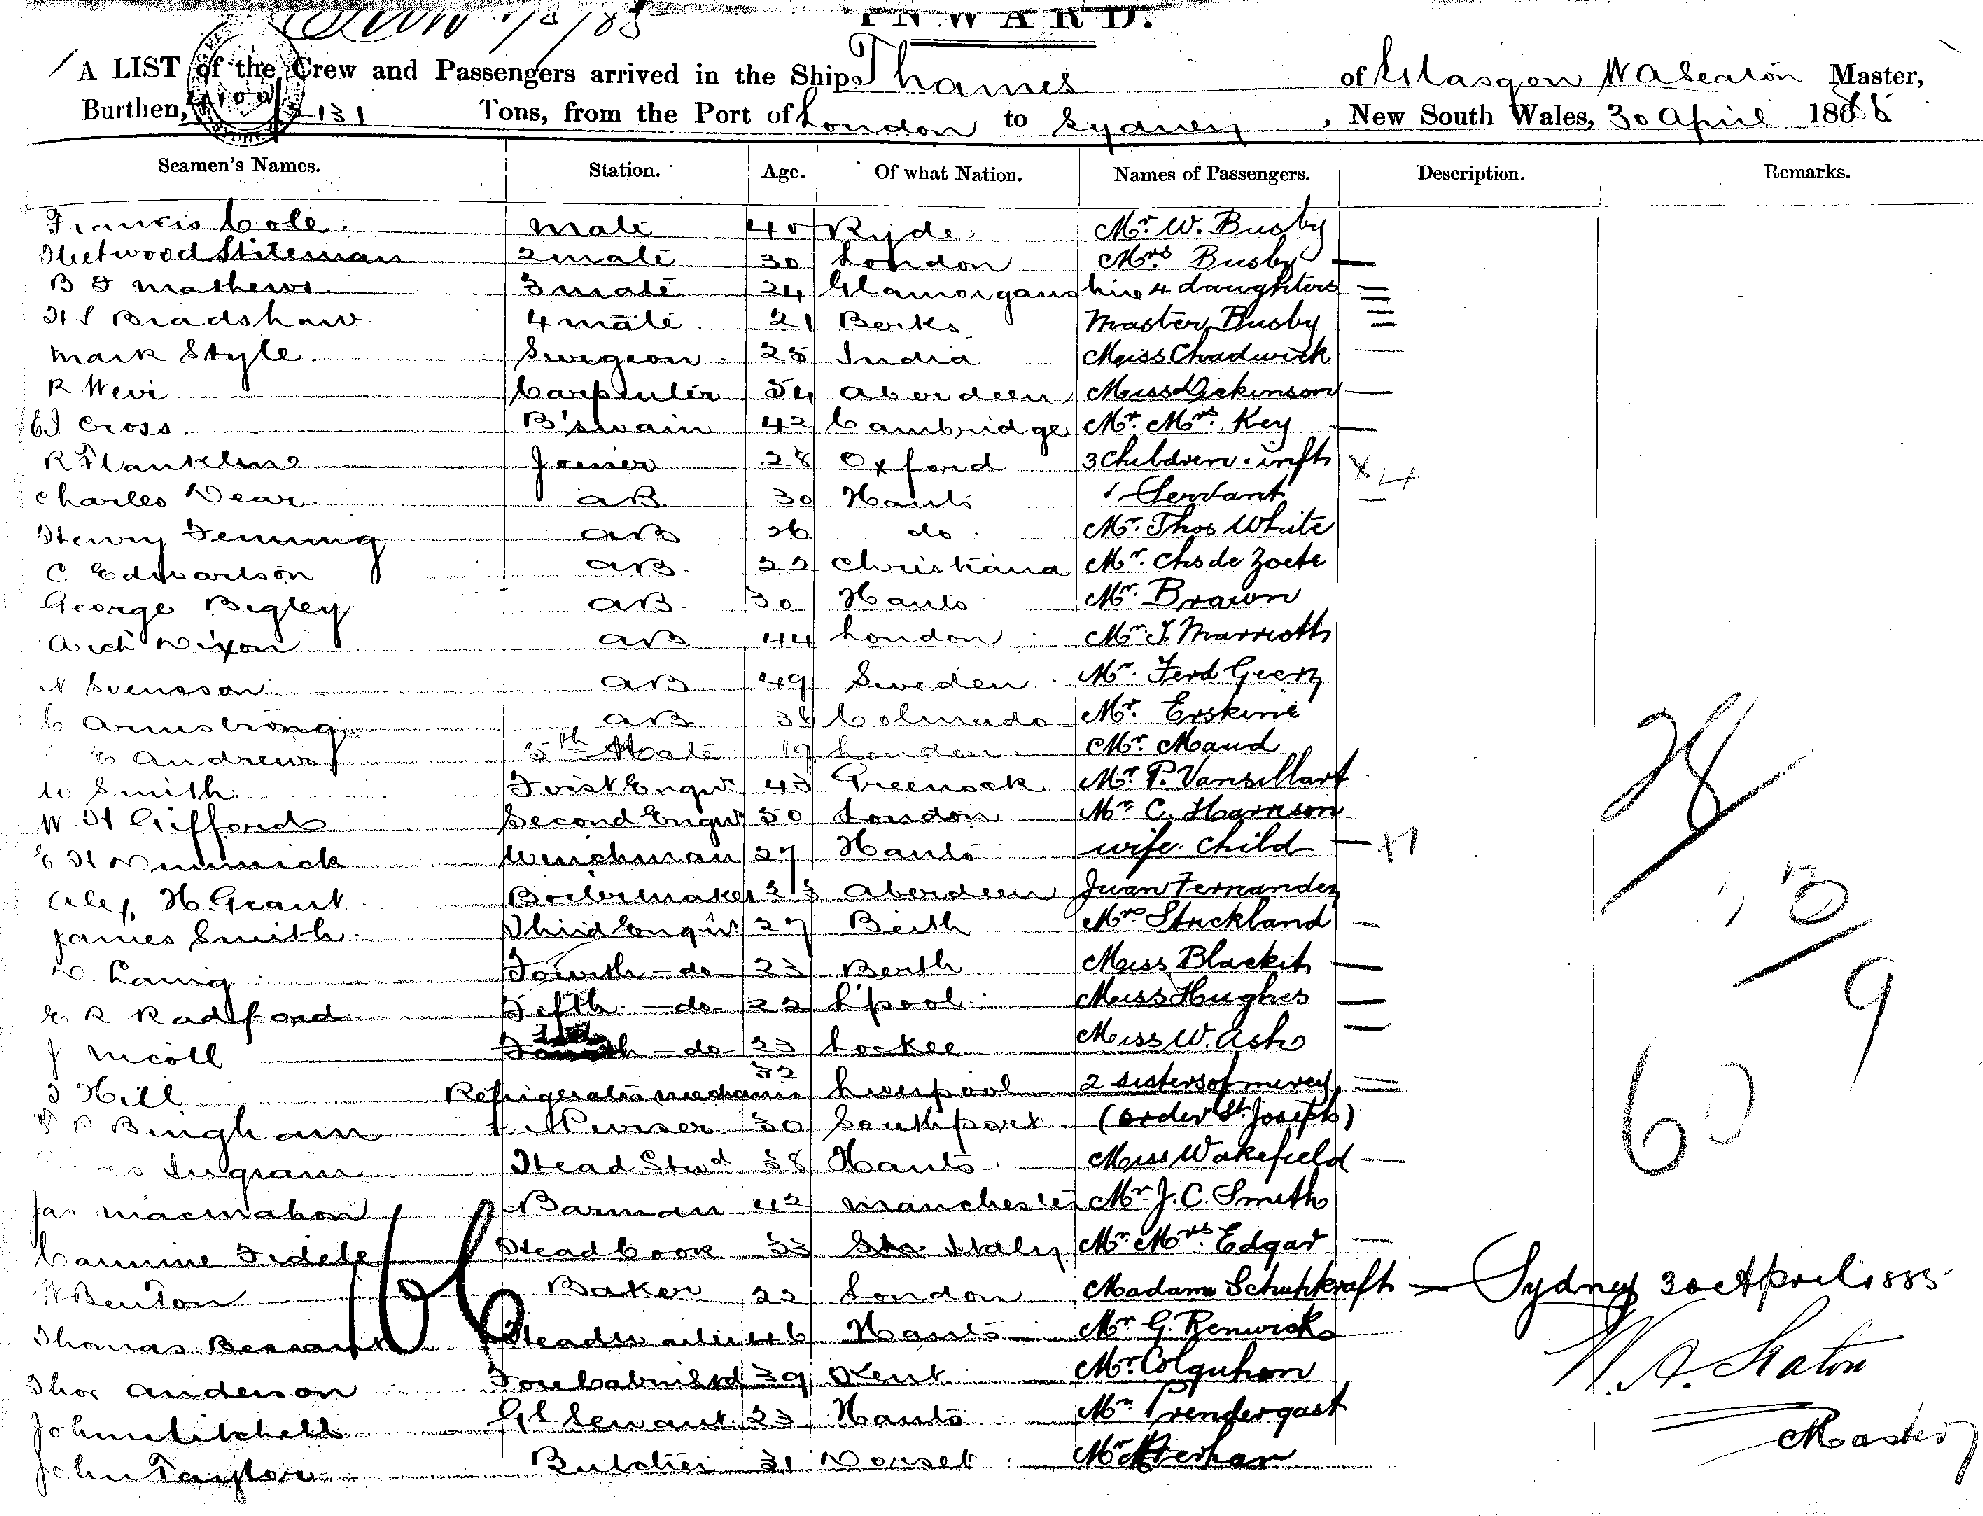 INWARD.
A LIST of the Crew and Passengers arrived in the Ship Thames of Glasgow W A Seaton Master,
Burthen, 2131 Tons, from the Port of London to Sydney, New South Wales, 30 April 1885
Seamen's Names. Station. Age. Of what Nation. Names of Passengers. Description. Remarks.
Francis Cole mate 40 Ryde Mr. W. Busby
Fleetwood Stileman 2 mate 30 London Mrs Busby
B F Mathews 3 mate 24 Glamorganshire 4 daughters
H S Bradshaw 4 mate 21 Berks Master Busby
Mark Style Surgeon 25 India Miss Chadwick
R Weir Carpenter 54 Aberdeen Miss Dickinson
EJ Cross B'swain 42 Cambridge Mr. Mrs. Key
R Franklin Joiner 28 Oxford 3 Children infts
Charles Dear AB 30 Hants 1 Servant
Henry AB 26 do Mr. Thos White
C Edwartson AB 22 Christiana Mr. Chs de Zoete
George Bigley AB 30 Hants Mr. Brown
Arch Dixon AB 44 London Mr. J. Marriott
N Svensson AB 49 Sweden Mr. Ferd
C Armstrong AB Mr. Erskine
E Andrews 5th Mate 19 London Mr. Maud
W Smith First Engr 43 Greenock Mr. P. Vansillart
W H Gifford Second Engr 30 London Mr. C. Harrison
E H Winchman 27 Hants wife child
Alex H. Grant Boilermaker 33 Aberdeen Juan Fernandez
James Smith Third Engr 27 Beith Mrs Strickland
Laing Fourth do 23 Beith Miss Blackit
E R Radford Fifth do 22 L'pool Miss Hughes
J Nicoll do 23 Lochee Miss W. Ash
T Hill Refrigerator mechanic 32 Liverpool 2 sisters of mercy
Bingham Purser 30 Southport (order St. Joseph)
Ingram Head Stwd 38 Hants Miss Wakefield
Jas Macmahon Barman 42 Manchester Mr J. C. Smith
Carmine Fidele Head Cook 33 Italy Mr. Mrs Edgar
W Benton Baker 22 London Madame Schuhkraft Sydney 30 April 1885
Thomas Head Waiter 46 Hants Mr G. Renwick
W. A. Seaton
Thos Anderson Fore Cabin Std 39 Kent Mr Colquhon
John Mitchell Gl Servant 23 Hants Mr Prendergast
Master
John Taylor Butcher 31 Dorset Mr
106
28
13
9
60